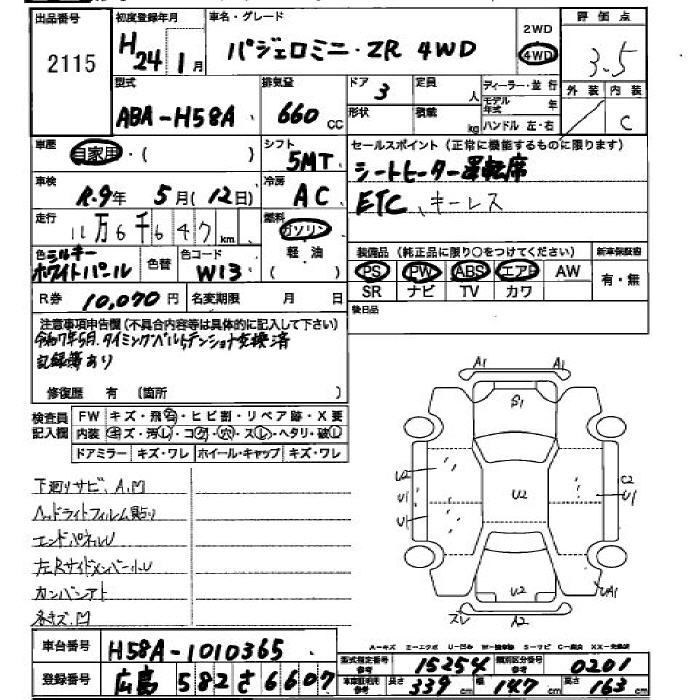 出品番号 2115
初度登録年月 H24 1月
車名・グレード パジェロミニ・ZR 4WD
2WD
4WD
評価点 3.5
外装 内装 C
型式 ABA-H58A
排気量 660 CC
ドア 3
形状
定員 人
積載 kg
ディーラー・並行
モデル年式 年
ハンドル 左・右
車歴 自家用・( )
シフト 5MT
セールスポイント (正常に機能するものに限ります)
シートヒーター運転席
ETC、キーレス
車検 R.9年 5月(12日)
冷房 AC
走行 11万6千647km
燃料 ガソリン
軽・油
( )
色 シルキーホワイトパール
色替
色コード W13
装備品 (純正品に限り○をつけてください) 新車保証書
PS PW ABS エアB AW 有・無
SR ナビ TV カワ
R券 10,070円 名変期限 月 日
後日品
注意事項申告欄 (不具合内容等は具体的に記入して下さい)
令和7年5月.タイミングベルト,テンショナ交換済
記録簿あり
修復歴 有 (箇所 )
検査員記入欄
FW キズ・飛石・ヒビ割・リペア跡・X要
内装 キズ・汚レ・コゲ・穴・スレ・ヘタリ・破レ
ドアミラー キズ・ワレ ホイール・キャップ キズ・ワレ
下廻りサビ、A.凹
ヘッドライトフィルム貼り
エンドパネルU
左Rサイドメンバー小U
カンバンアト
A1 A1
S1
U2 C2
U1 U2 U1
U1
U2 UA1
スレ A2
車台番号 H58A-1010365
登録番号 広島 582 さ 6607
型式指定番号 参考 15254
類別区分番号 参考 0201
車両証記載 参考 長さ 339cm 幅 147cm 高さ 163cm